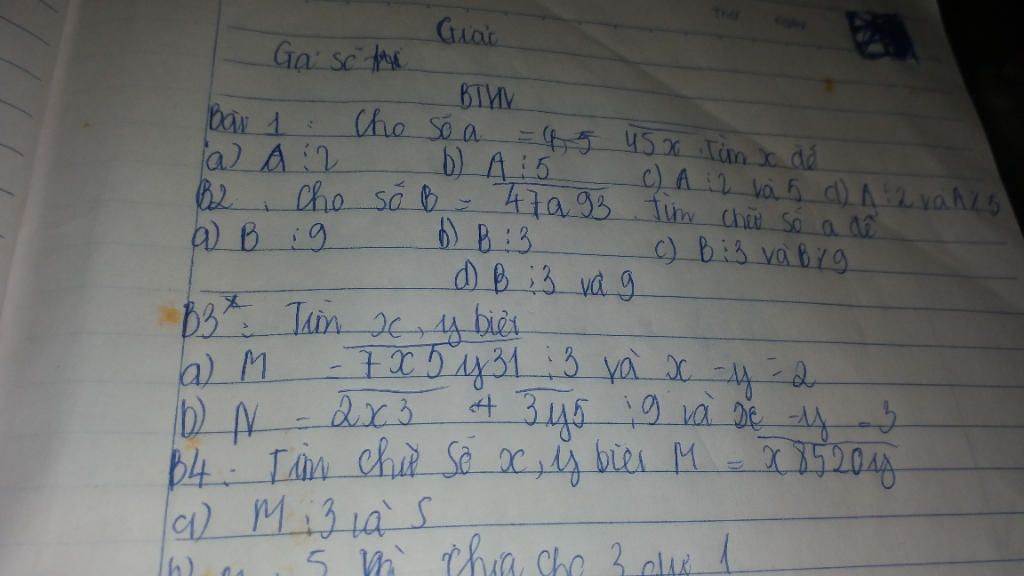 Giải
Gọi số
BTVN
Bài 1 : Cho số a = 45x Tìm x để
a) A ⋮ 2 b) A ⋮ 5 c) A ⋮ 2 và 5 d) A ⋮ 2 và A ⋮̸ 5
B2 . Cho số B = 47a93 . Tìm chữ số a để
a) B ⋮ 9 b) B ⋮ 3 c) B ⋮ 3 và B ⋮̸ 9
d) B ⋮ 3 và 9
B3* : Tìm x, y biết
a) M = 7x5y31 ⋮ 3 và x - y = 2
b) N = 2x3 + 3y5 ⋮ 9 và x - y = 3
B4 : Tìm chữ số x, y biết M = x8520y
a) M ⋮ 3 và 5
5 chia cho 3 dư 1